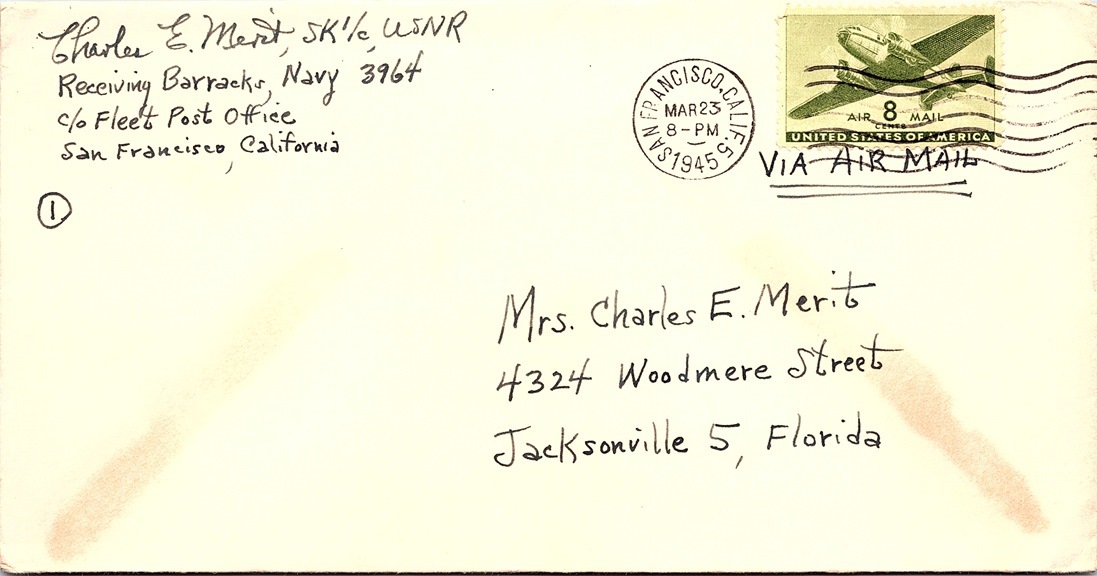 Charles E. Merit, SK1/c, USNR
Receiving Barracks, Navy 3964
c/o Fleet Post Office
San Francisco, California
1
SAN FRANCISCO, CALIF. 5
MAR 23
8-PM
1945
AIR 8 MAIL
CENTS
UNITED STATES OF AMERICA
VIA AIR MAIL
Mrs. Charles E. Merit
4324 Woodmere Street
Jacksonville 5, Florida